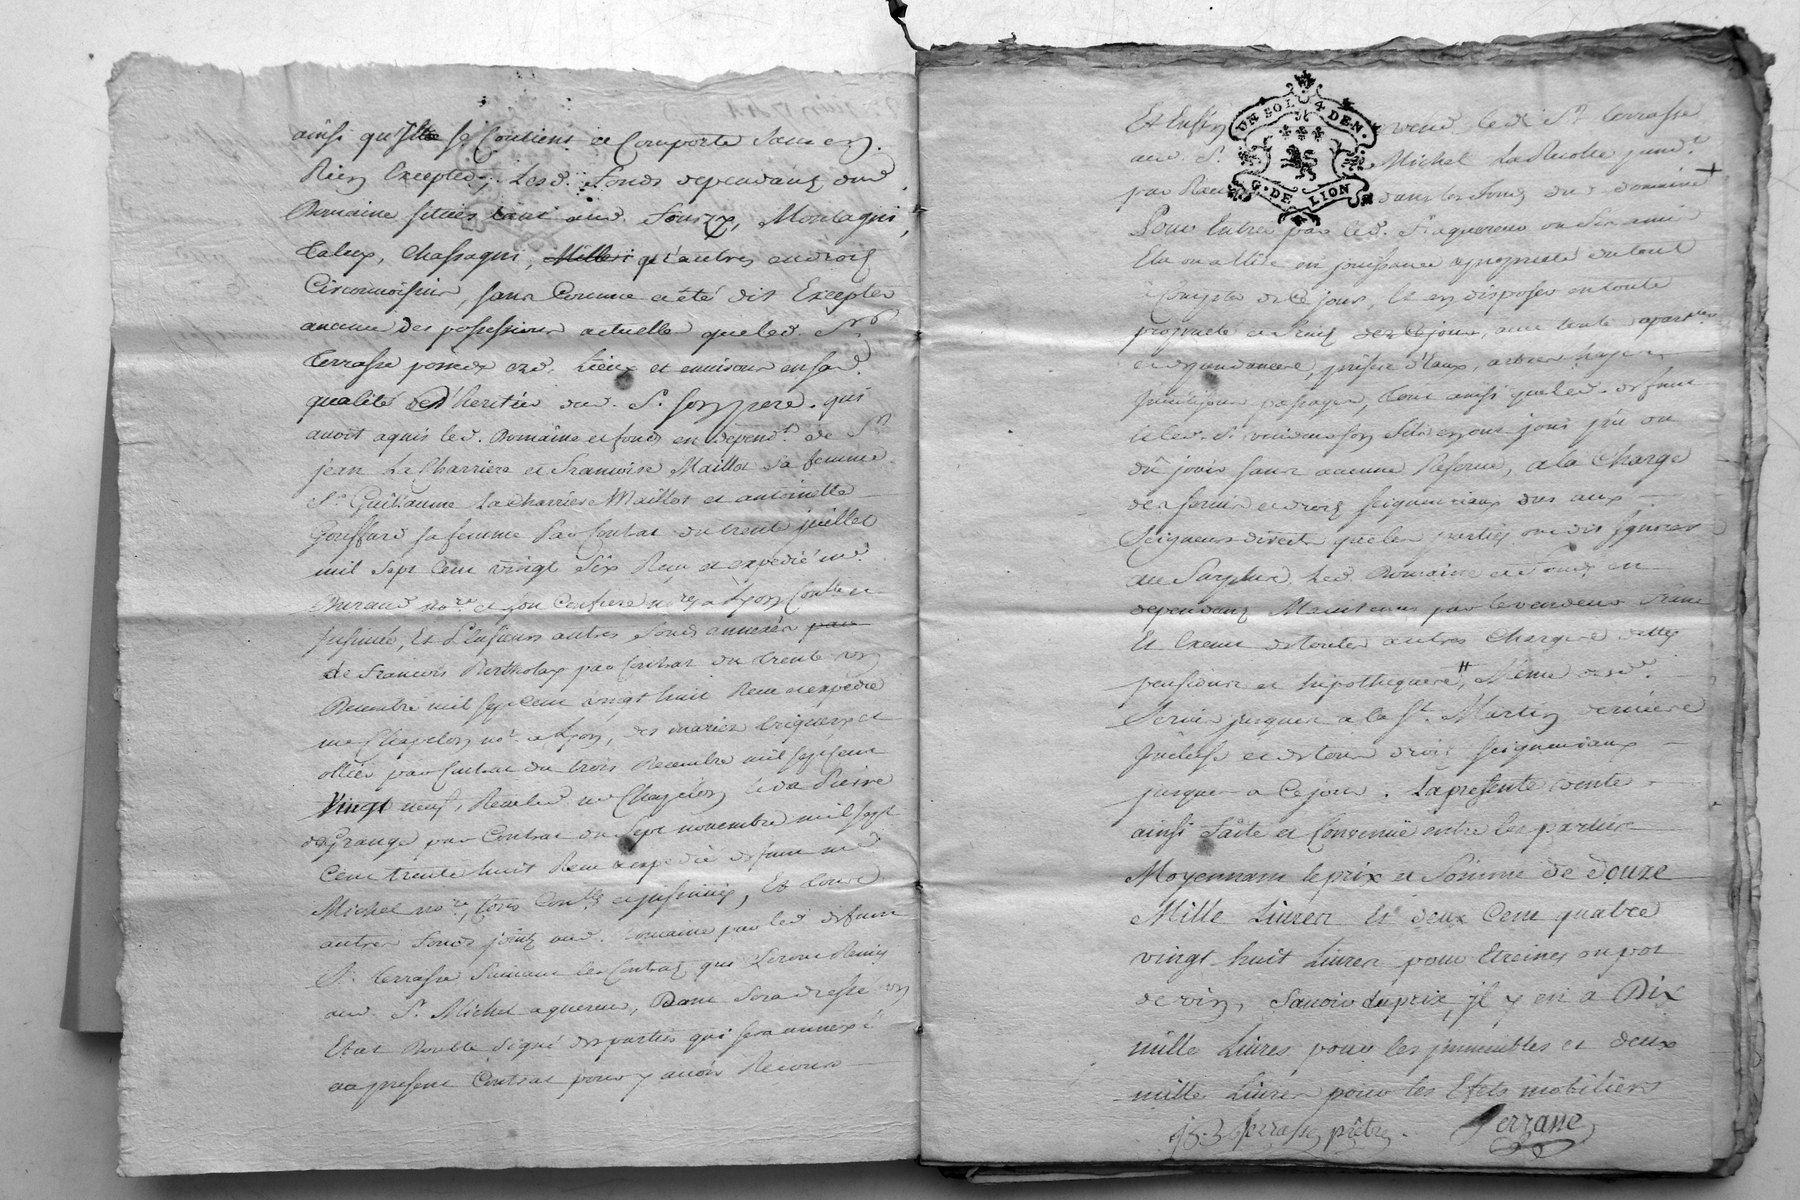 ainsi qu'Il se Contient et Comporte sans en
Rien Excepter, Lesd. fonds dependants dud.
Domaine situés tant aud. Sourzy, Montagni,
Taluy, Chassagni, Milleri qu'autres endroits
Circonvoisins, sans Comme a été dit Excepter
aucune des possessions actuelle que led. Sr
Terrasse possede esd. Lieux et environs en sad.
qualité d'heritier dud. Sr. son pere. qui
avoit aquis led. Domaine et fonds en depend.ts de Sr
jean La Charriere et francoise Maillot sa femme
Sr. Guillaume La Charriere Maillot et antoinette
Gouffard sa femme Par Contrat du trente juillet
mil sept Cent vingt Six Recu et expedié me.
Durand no.re et son Confrere n.res a Lyon Controllé
Insinué, Et Plusieurs autres fonds annexés par
de francois Bertholay par Contrat du trente un
Decembre mil sept cent vingt huit Recu et expedié
me Chapelon no.re a Lyon, des mariés et
ollier par Contrat du trois Decembre mil sept cent
Vingt neuf, Recu led. me Chapelon et de Pierre
deGrange par Contrat du Sept novembre mil sept
Cent trente huit Recu et expedié defunt me
Michel no.re, tous Con.lés et insinués, Et tous
autres fonds joints aud. Domaine par led. defunt
Sr. Terrasse Suivant les Contrats qui Seront Remis
aud. Sr. Michel aquereur, Dont Sera dressé un
Etat Double Signé des parties qui sera annexé
au present Contrat pour y avoir Recours
UN SOL 4 DEN.
G. DE LION
Et Enfin vend led. Sr. Terrasse
aud. Sr. Michel La Recolte pend.te
par Racines dans les fonds dud. Domaine
Pour Entrer par led. Sr aquereur ou Son ami
Elu ou a Elire en jouissance et proprieté du tout
a Compter de Ce jour, Et en disposer en toute
proprieté et fruits des Ce jour, avec toutes apar.ces
et dependances, prises d'Eaux, arbres, hayes
passages, tout ainsi que led. defunt
et led. Sr. vendeur son fils en ont joui pû ou
dû jouir sans aucune Reserve, a la Charge
des servis et droits seigneuriaux dus aux
Seigneurs directs que les parties ont dit Ignorer
au Surplus Led. Domaine et fonds en
dependants Maintenus par le vendeur francs
Et Exemt de toutes autres Charges dettes
pensions et hipotheques, Même desd.
Servis jusques a la St. Martin derniere
et de tous droits Seigneuriaux
jusques a Ce jour. La presente vente
ainsi faite et Convenüe entre les parties
Moyennant le prix et Somme de Douze
Mille Livres Et deux Cent quatre
vingt huit Livres pour Etreines ou pot
de vin, Savoir du prix, il y en a Dix
mille Livres pour les immeubles et deux
mille Livres pour les Efets mobiliers
Terrasse prêtre. Terrasse